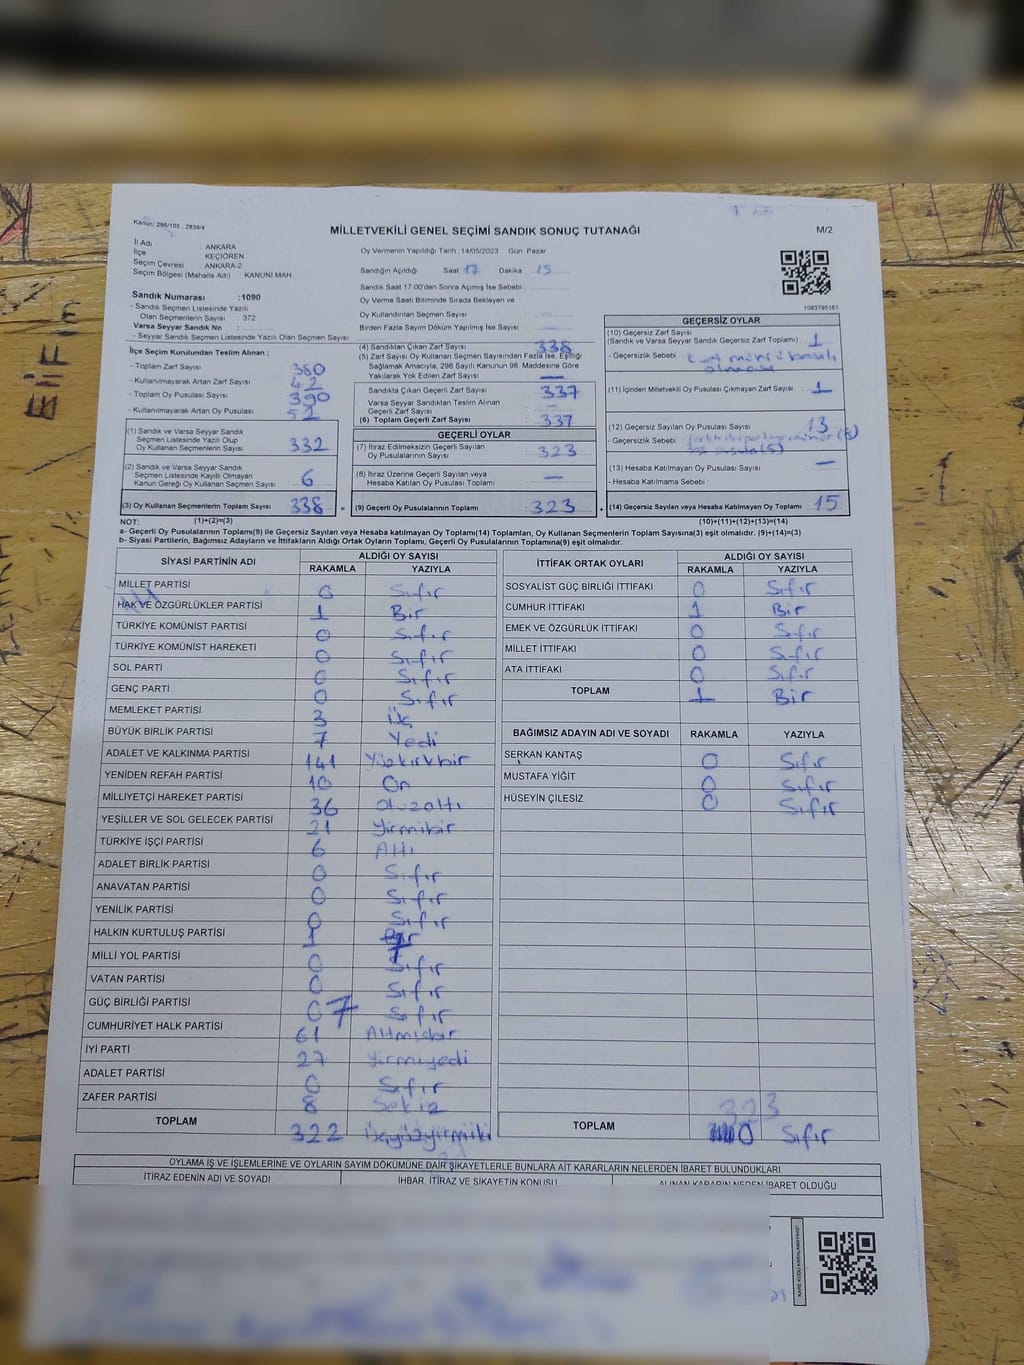 Kanun: 298/105 , 2839/4
MİLLETVEKİLİ GENEL SEÇİMİ SANDIK SONUÇ TUTANAĞI
M/2
İl Adı : ANKARA
İlçe : KEÇİÖREN
Seçim Çevresi : ANKARA-2
Seçim Bölgesi (Mahalle Adı) : KANUNİ MAH
Sandık Numarası :1090
- Sandık Seçmen Listesinde Yazılı
Olan Seçmenlerin Sayısı : 372
Varsa Seyyar Sandık No :
- Seyyar Sandık Seçmen Listesinde Yazılı Olan Seçmen Sayısı
Oy Vermenin Yapıldığı Tarih : 14/05/2023 Gün: Pazar
Sandığın Açıldığı Saat 17 Dakika : 15
Sandık Saat 17:00'den Sonra Açılmış İse Sebebi :
Oy Verme Saati Bitiminde Sırada Bekleyen ve
Oy Kullandırılan Seçmen Sayısı :
Birden Fazla Sayım Döküm Yapılmış İse Sayısı :
1083795161
İlçe Seçim Kurulundan Teslim Alınan :
- Toplam Zarf Sayısı : 380
- Kullanılmayarak Artan Zarf Sayısı : 42
- Toplam Oy Pusulası Sayısı : 390
- Kullanılmayarak Artan Oy Pusulası : 52
(1) Sandık ve Varsa Seyyar Sandık
Seçmen Listesinde Yazılı Olup
Oy Kullanan Seçmenlerin Sayısı : 332
(2) Sandık ve Varsa Seyyar Sandık
Seçmen Listesinde Kayıtlı Olmayan
Kanun Gereği Oy Kullanan Seçmen Sayısı : 6
(3) Oy Kullanan Seçmenlerin Toplam Sayısı : 338
(1)+(2)=(3)
(4) Sandıktan Çıkan Zarf Sayısı : 338
(5) Zarf Sayısı Oy Kullanan Seçmen Sayısından Fazla İse, Eşitliği
Sağlamak Amacıyla, 298 Sayılı Kanunun 98. Maddesine Göre
Yakılarak Yok Edilen Zarf Sayısı : —
Sandıkta Çıkan Geçerli Zarf Sayısı : 337
Varsa Seyyar Sandıktan Teslim Alınan
Geçerli Zarf Sayısı : —
(6) Toplam Geçerli Zarf Sayısı : 337
GEÇERLİ OYLAR
(7) İtiraz Edilmeksizin Geçerli Sayılan
Oy Pusulalarının Sayısı : 323
(8) İtiraz Üzerine Geçerli Sayılan veya
Hesaba Katılan Oy Pusulası Toplamı : —
= (9) Geçerli Oy Pusulalarının Toplamı : 323
GEÇERSİZ OYLAR
(10) Geçersiz Zarf Sayısı
(Sandık ve Varsa Seyyar Sandık Geçersiz Zarf Toplamı) : 1
- Geçersizlik Sebebi :
(11) İçinden Milletvekili Oy Pusulası Çıkmayan Zarf Sayısı : 1
(12) Geçersiz Sayılan Oy Pusulası Sayısı : 13
- Geçersizlik Sebebi :
(13) Hesaba Katılmayan Oy Pusulası Sayısı : —
- Hesaba Katılmama Sebebi :
+ (14) Geçersiz Sayılan veya Hesaba Katılmayan Oy Toplamı : 15
(10)+(11)+(12)+(13)=(14)
NOT:
a- Geçerli Oy Pusulalarının Toplamı(9) ile Geçersiz Sayılan veya Hesaba katılmayan Oy Toplamı(14) Toplamları, Oy Kullanan Seçmenlerin Toplam Sayısına(3) eşit olmalıdır. (9)+(14)=(3)
b- Siyasi Partilerin, Bağımsız Adayların ve İttifakların Aldığı Ortak Oyların Toplamı, Geçerli Oy Pusulalarının Toplamına(9) eşit olmalıdır.
SİYASİ PARTİNİN ADI ALDIĞI OY SAYISI
RAKAMLA YAZIYLA
MİLLET PARTİSİ 0 Sıfır
HAK VE ÖZGÜRLÜKLER PARTİSİ 1 Bir
TÜRKİYE KOMÜNİST PARTİSİ 0 Sıfır
TÜRKİYE KOMÜNİST HAREKETİ 0 Sıfır
SOL PARTİ 0 Sıfır
GENÇ PARTİ 0 Sıfır
MEMLEKET PARTİSİ 3 Üç
BÜYÜK BİRLİK PARTİSİ 7 Yedi
ADALET VE KALKINMA PARTİSİ 141 Yüzkırkbir
YENİDEN REFAH PARTİSİ 10 On
MİLLİYETÇİ HAREKET PARTİSİ 36 Otuzaltı
YEŞİLLER VE SOL GELECEK PARTİSİ 21 Yirmibir
TÜRKİYE İŞÇİ PARTİSİ 6 Altı
ADALET BİRLİK PARTİSİ 0 Sıfır
ANAVATAN PARTİSİ 0 Sıfır
YENİLİK PARTİSİ 0 Sıfır
HALKIN KURTULUŞ PARTİSİ 1 Bir
MİLLİ YOL PARTİSİ 0 Sıfır
VATAN PARTİSİ 0 Sıfır
GÜÇ BİRLİĞİ PARTİSİ 0 7 Sıfır
CUMHURİYET HALK PARTİSİ 61 Altmışbir
İYİ PARTİ 27 Yirmiyedi
ADALET PARTİSİ 0 Sıfır
ZAFER PARTİSİ 8 Sekiz
TOPLAM 322 Üçyüzyirmiiki
İTTİFAK ORTAK OYLARI ALDIĞI OY SAYISI
RAKAMLA YAZIYLA
SOSYALİST GÜÇ BİRLİĞİ İTTİFAKI 0 Sıfır
CUMHUR İTTİFAKI 1 Bir
EMEK VE ÖZGÜRLÜK İTTİFAKI 0 Sıfır
MİLLET İTTİFAKI 0 Sıfır
ATA İTTİFAKI 0 Sıfır
TOPLAM 1 Bir
BAĞIMSIZ ADAYIN ADI VE SOYADI RAKAMLA YAZIYLA
SERKAN KANTAŞ 0 Sıfır
MUSTAFA YİĞİT 0 Sıfır
HÜSEYİN ÇİLESİZ 0 Sıfır
323
TOPLAM 0 Sıfır
OYLAMA İŞ VE İŞLEMLERİNE VE OYLARIN SAYIM DÖKÜMÜNE DAİR ŞİKAYETLERLE BUNLARA AİT KARARLARIN NELERDEN İBARET BULUNDUKLARI
İTİRAZ EDENİN ADI VE SOYADI İHBAR, İTİRAZ VE ŞİKAYETİN KONUSU ALINAN KARARIN NEDEN İBARET OLDUĞU